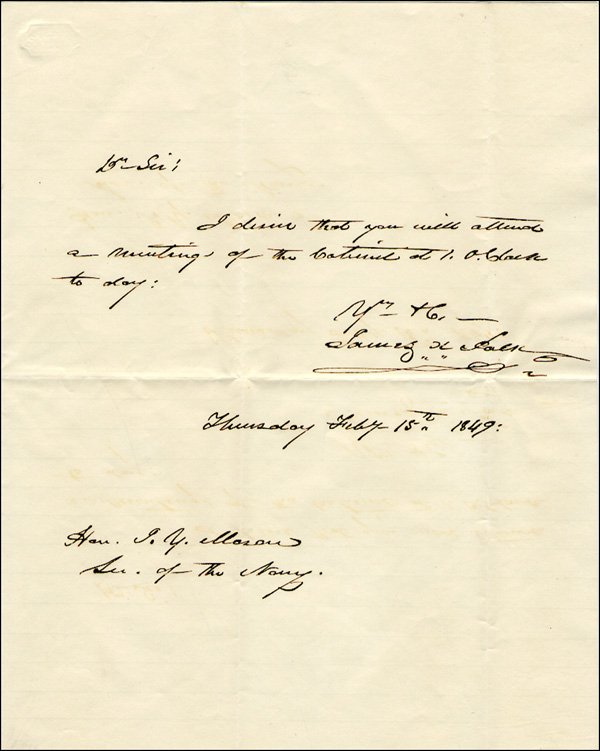 Dr Sir;
I desire that you will attend
a meeting of the Cabinet at 1. O.Clock
to day:
Yrs &c. —
James K. Polk
Thursday Feby 15th 1849:
Hon. J. Y. Mason
Sec. of the Navy.